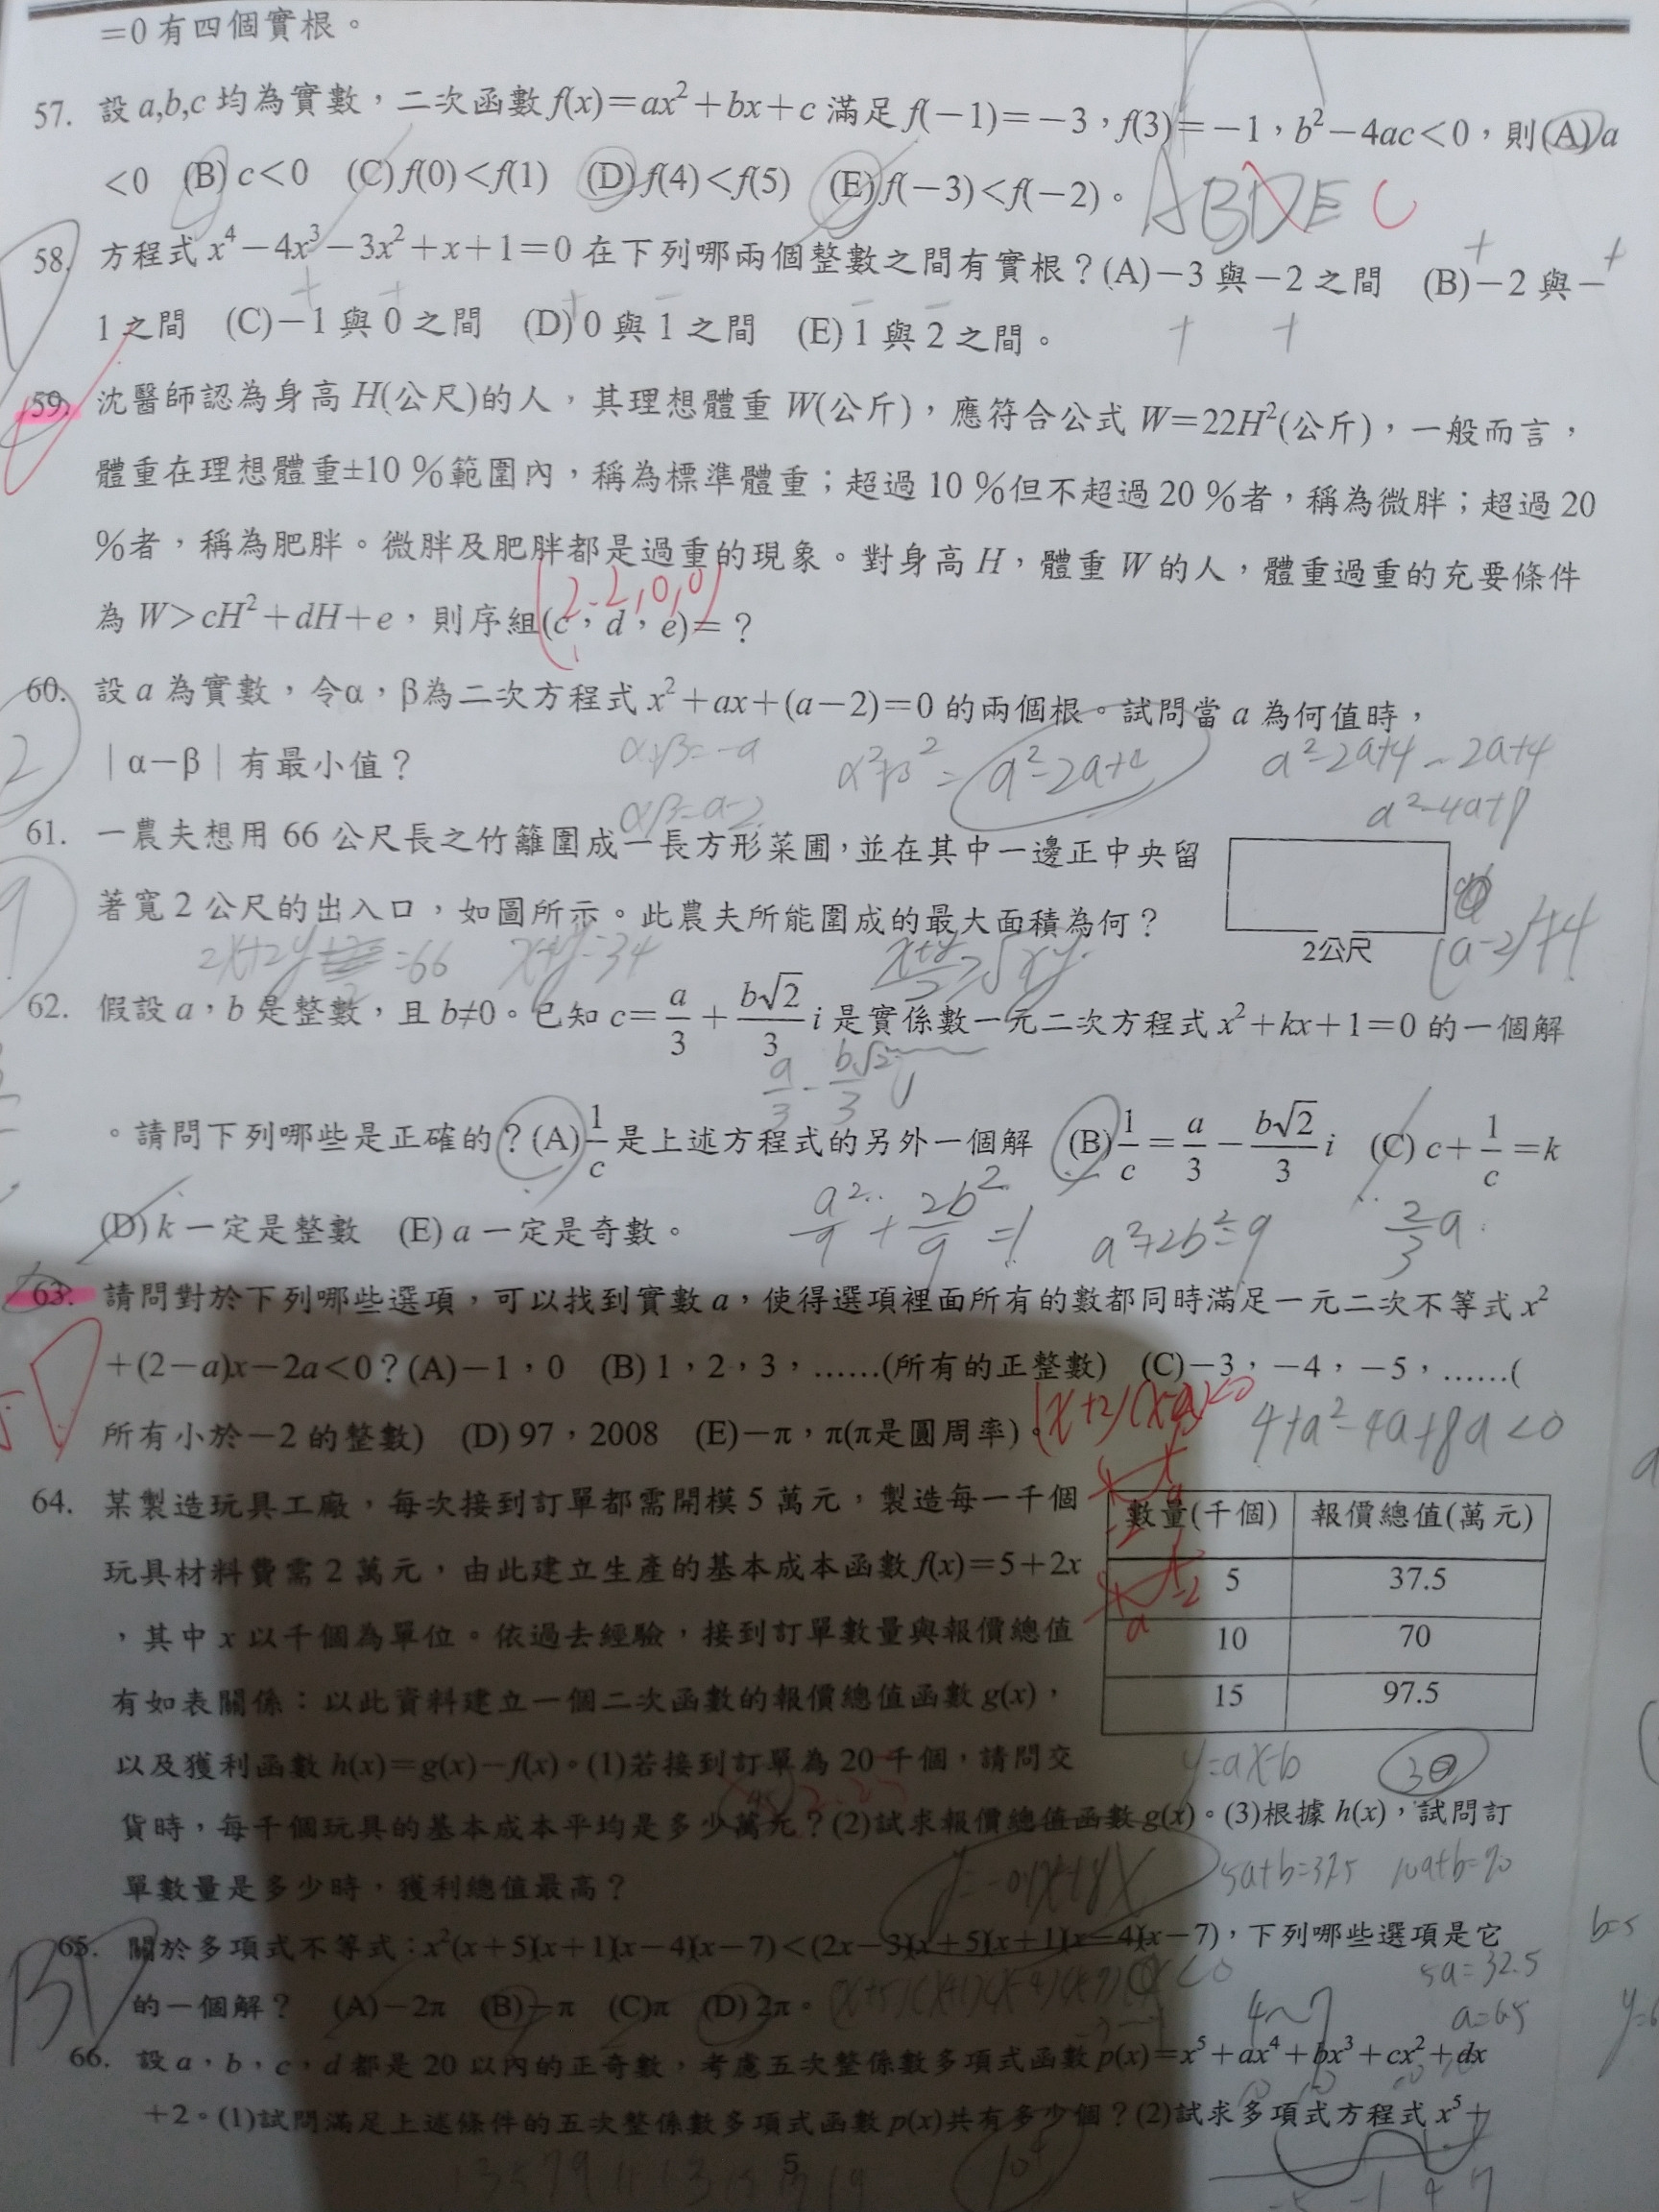 =0有四個實根。
57. 設a,b,c均為實數，二次函數f(x)=ax²+bx+c滿足f(-1)=-3，f(3)=-1，b²-4ac<0，則(A)a
<0 (B)c<0 (C)f(0)<f(1) (D)f(4)<f(5) (E)f(-3)<f(-2)。 ABDE C
58. 方程式x⁴-4x³-3x²+x+1=0在下列哪兩個整數之間有實根？(A)-3與-2之間 (B)-2與-
1之間 (C)-1與0之間 (D)0與1之間 (E)1與2之間。
59. 沈醫師認為身高H(公尺)的人，其理想體重W(公斤)，應符合公式W=22H²(公斤)，一般而言，
體重在理想體重±10%範圍內，稱為標準體重；超過10%但不超過20%者，稱為微胖；超過20
%者，稱為肥胖。微胖及肥胖都是過重的現象。對身高H，體重W的人，體重過重的充要條件
為W>cH²+dH+e，則序組(c，d，e)=？
60. 設a為實數，令α，β為二次方程式x²+ax+(a-2)=0的兩個根。試問當a為何值時，
|α-β|有最小值？
αβ=a-2
a²-2a+4
a²-2a+4-2a+4
a²-4a+8
61. 一農夫想用66公尺長之竹籬圍成一長方形菜圃，並在其中一邊正中央留
著寬2公尺的出入口，如圖所示。此農夫所能圍成的最大面積為何？
2公尺
(a-2)²+4
x+y=34
62. 假設a，b是整數，且b≠0。已知c=a/3+b√2/3 i是實係數一元二次方程式x²+kx+1=0的一個解
a/3-b√2/3 i
。請問下列哪些是正確的？(A)1/c是上述方程式的另外一個解 (B)1/c=a/3-b√2/3 i (C)c+1/c=k
(D)k一定是整數 (E)a一定是奇數。
a²/9+2b²/9=1 a²+2b²=9 2/3a
63. 請問對於下列哪些選項，可以找到實數a，使得選項裡面所有的數都同時滿足一元二次不等式x²
+(2-a)x-2a<0？(A)-1，0 (B)1，2，3，……(所有的正整數) (C)-3，-4，-5，……(
所有小於-2的整數) (D)97，2008 (E)-π，π(π是圓周率)。
(x+2)(x-a)<0
4+a²-4a+8a<0
64. 某製造玩具工廠，每次接到訂單都需開模5萬元，製造每一千個
玩具材料費需2萬元，由此建立生產的基本成本函數f(x)=5+2x
，其中x以千個為單位。依過去經驗，接到訂單數量與報價總值
有如表關係：以此資料建立一個二次函數的報價總值函數g(x)，
以及獲利函數h(x)=g(x)-f(x)。(1)若接到訂單為20千個，請問交
貨時，每千個玩具的基本成本平均是多少萬元？(2)試求報價總值函數g(x)。(3)根據h(x)，試問訂
單數量是多少時，獲利總值最高？
數量(千個) 報價總值(萬元)
5 37.5
10 70
15 97.5
y=ax+b
65. 關於多項式不等式：x²(x+5)(x+1)(x-4)(x-7)<(2x-3)(x+5)(x+1)(x-4)(x-7)，下列哪些選項是它
的一個解？ (A)-2π (B)-π (C)π (D)2π。
5a=32.5
a=6.5
4~7
66. 設a，b，c，d都是20以內的正奇數，考慮五次整係數多項式函數p(x)=x⁵+ax⁴+bx³+cx²+dx
+2。(1)試問滿足上述條件的五次整係數多項式函數p(x)共有多少個？(2)試求多項式方程式x⁵+
5
10⁴